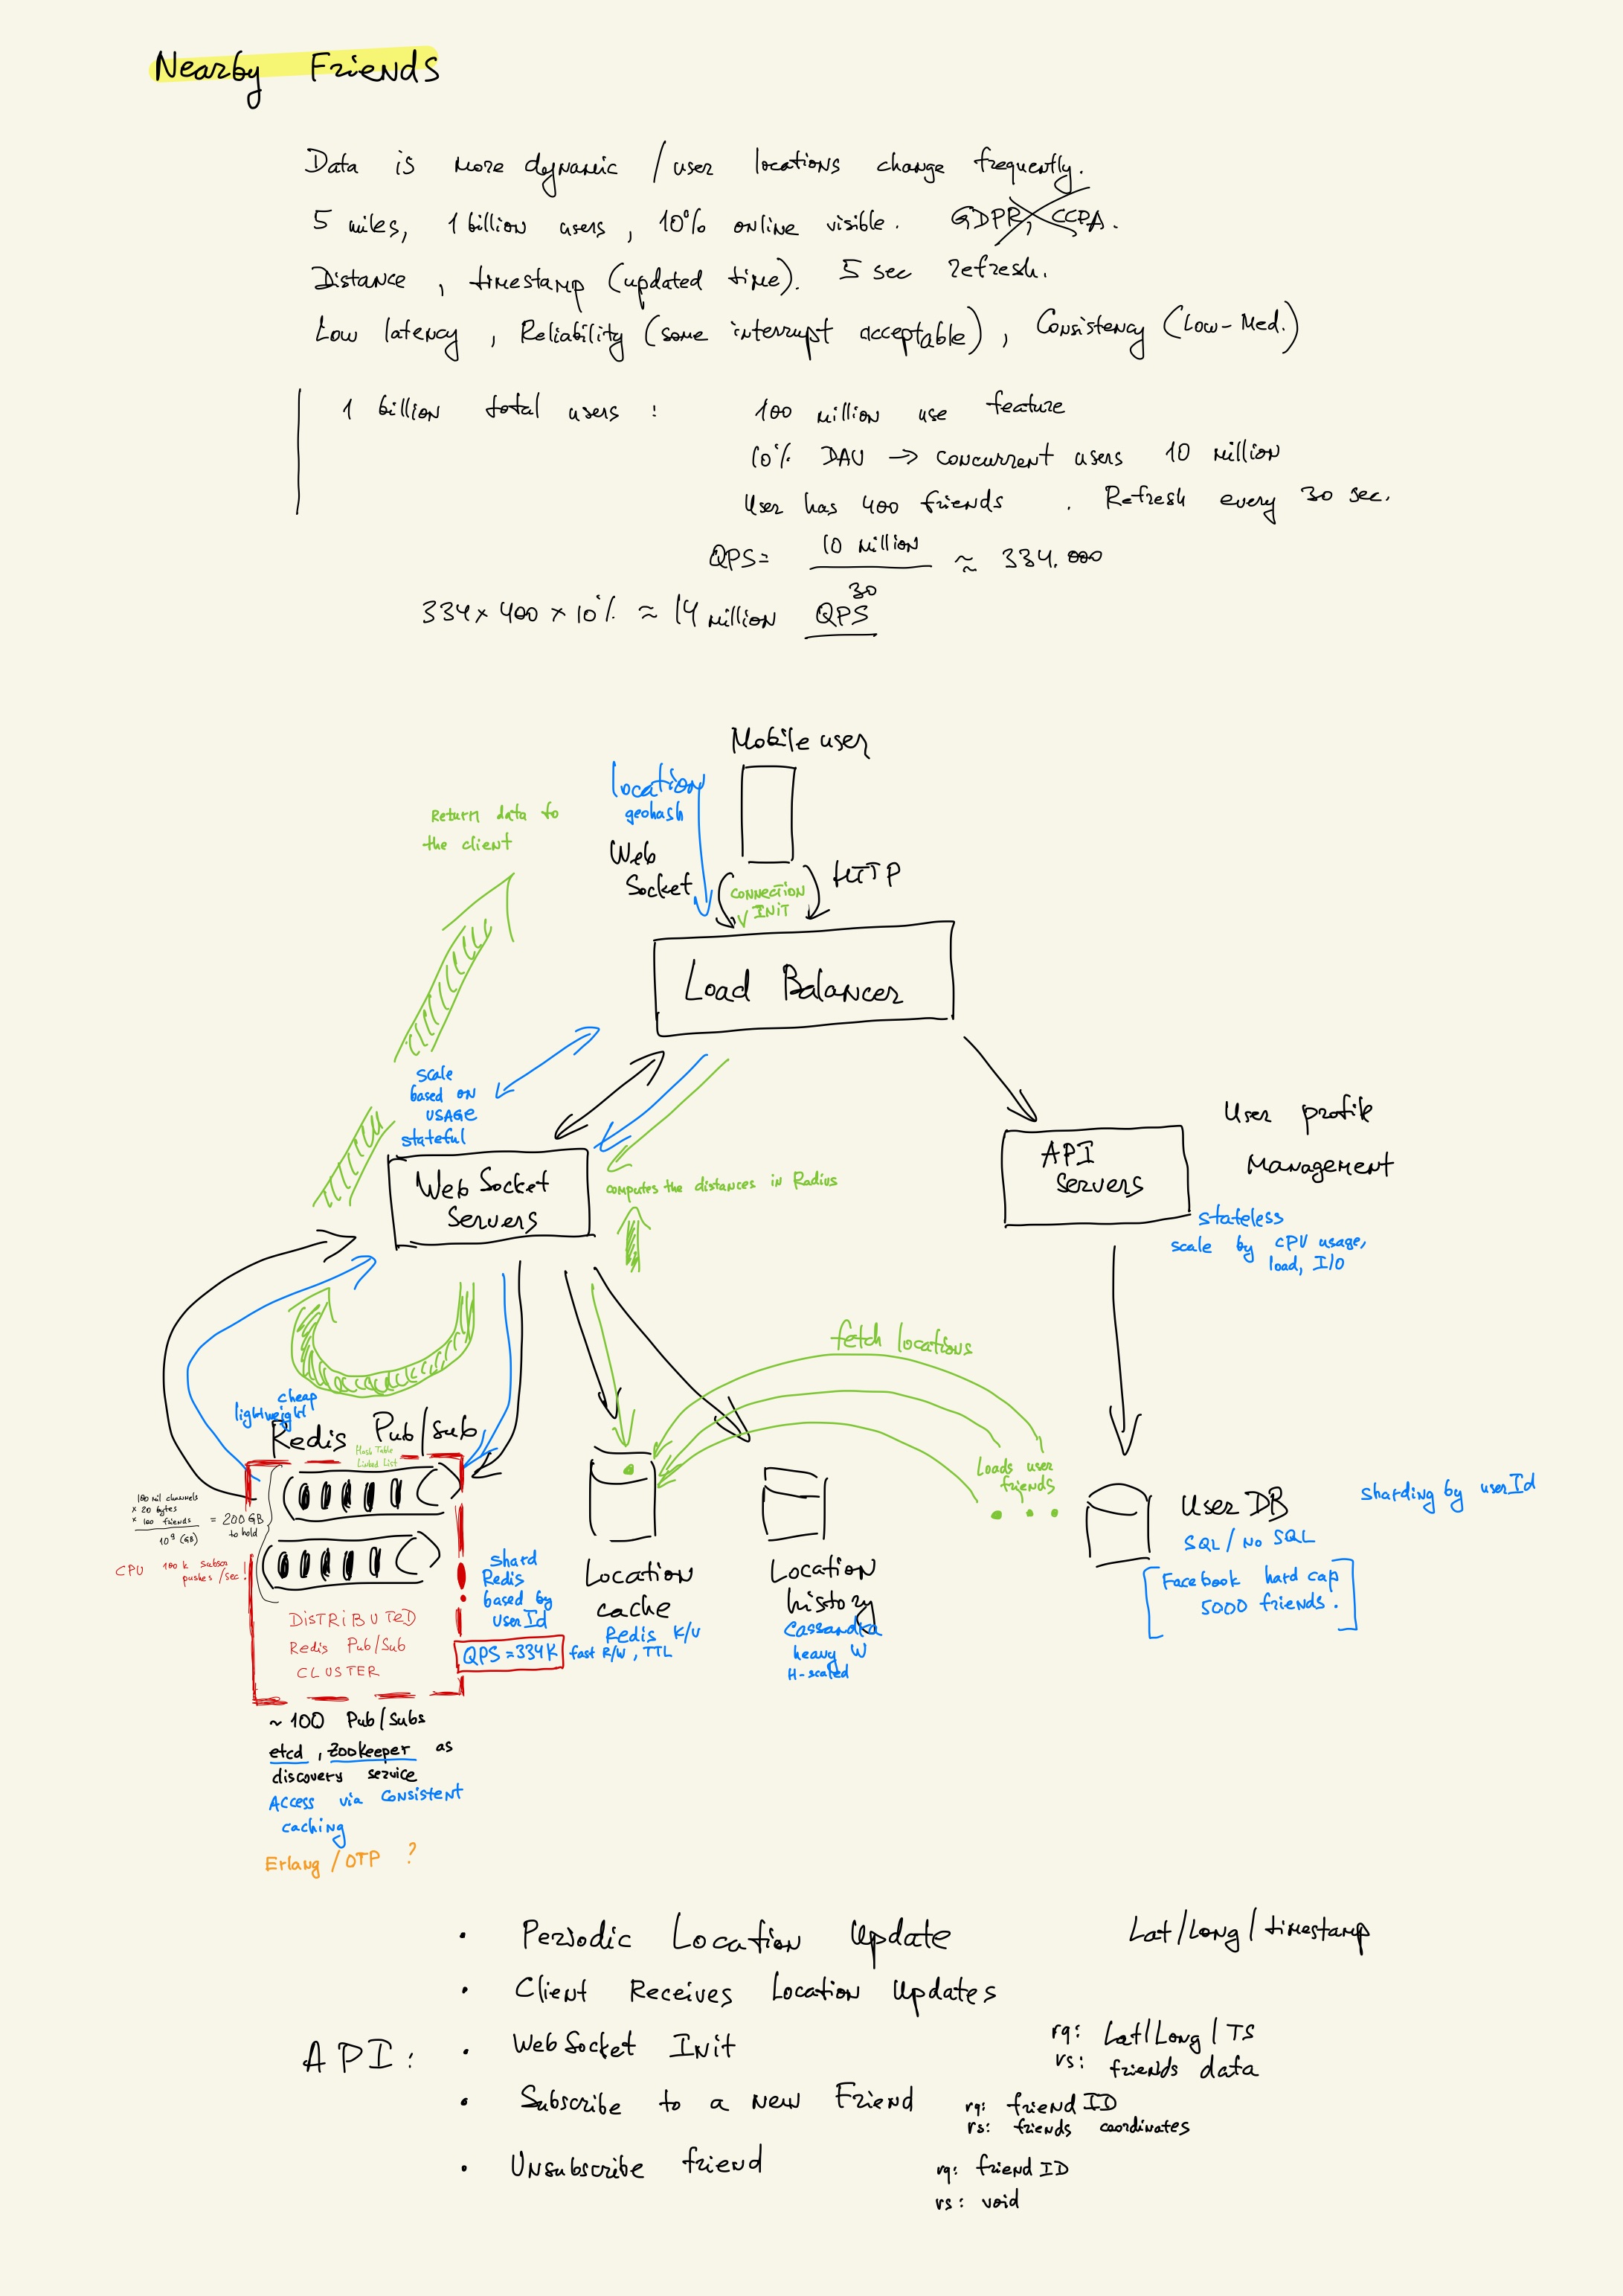 Nearby Friends
Data is more dynamic / user locations change frequently.
5 miles, 1 billion users, 10% online visible. GDPR, CCPA.
Distance, timestamp (updated time). 5 sec refresh.
Low latency, Reliability (some interrupt acceptable), Consistency (Low-Med.)
1 billion total users: 100 million use feature
10% DAU → concurrent users 10 million
User has 400 friends. Refresh every 30 sec.
QPS = 10 million / 30 ≈ 334.000
334 × 400 × 10% ≈ 14 million QPS
Mobile user
location
geohash
Web
Socket
HTTP
CONNECTION
INIT
Return data to
the client
Load Balancer
scale
based on
USAGE
stateful
Web Socket
Servers
computes the distances in Radius
API
Servers
User profile
Management
stateless
scale by CPU usage,
load, I/O
fetch locations
cheap
lightweight
Redis Pub/Sub
Hash Table
Linked List
100 mil channels
× 20 bytes
× 100 friends
10⁹ (GB)
= 200 GB
to hold
CPU 100k subscr
pushes/sec!
DISTRIBUTED
Redis Pub/Sub
CLUSTER
shard
Redis
based by
userId
QPS = 334K
Location
cache
Redis K/V
fast R/W, TTL
Location
history
Cassandra
heavy W
H-scaled
Loads user
friends
User DB
SQL / No SQL
Sharding by userId
Facebook hard cap
5000 friends.
~ 100 Pub/Subs
etcd, Zookeeper as
discovery service
Access via consistent
caching
Erlang / OTP ?
API:
• Periodic Location Update Lat/Long/timestamp
• Client Receives Location Updates
• WebSocket Init rq: Lat/Long/TS
rs: friends data
• Subscribe to a new Friend rq: friend ID
rs: friends coordinates
• Unsubscribe friend rq: friend ID
rs: void